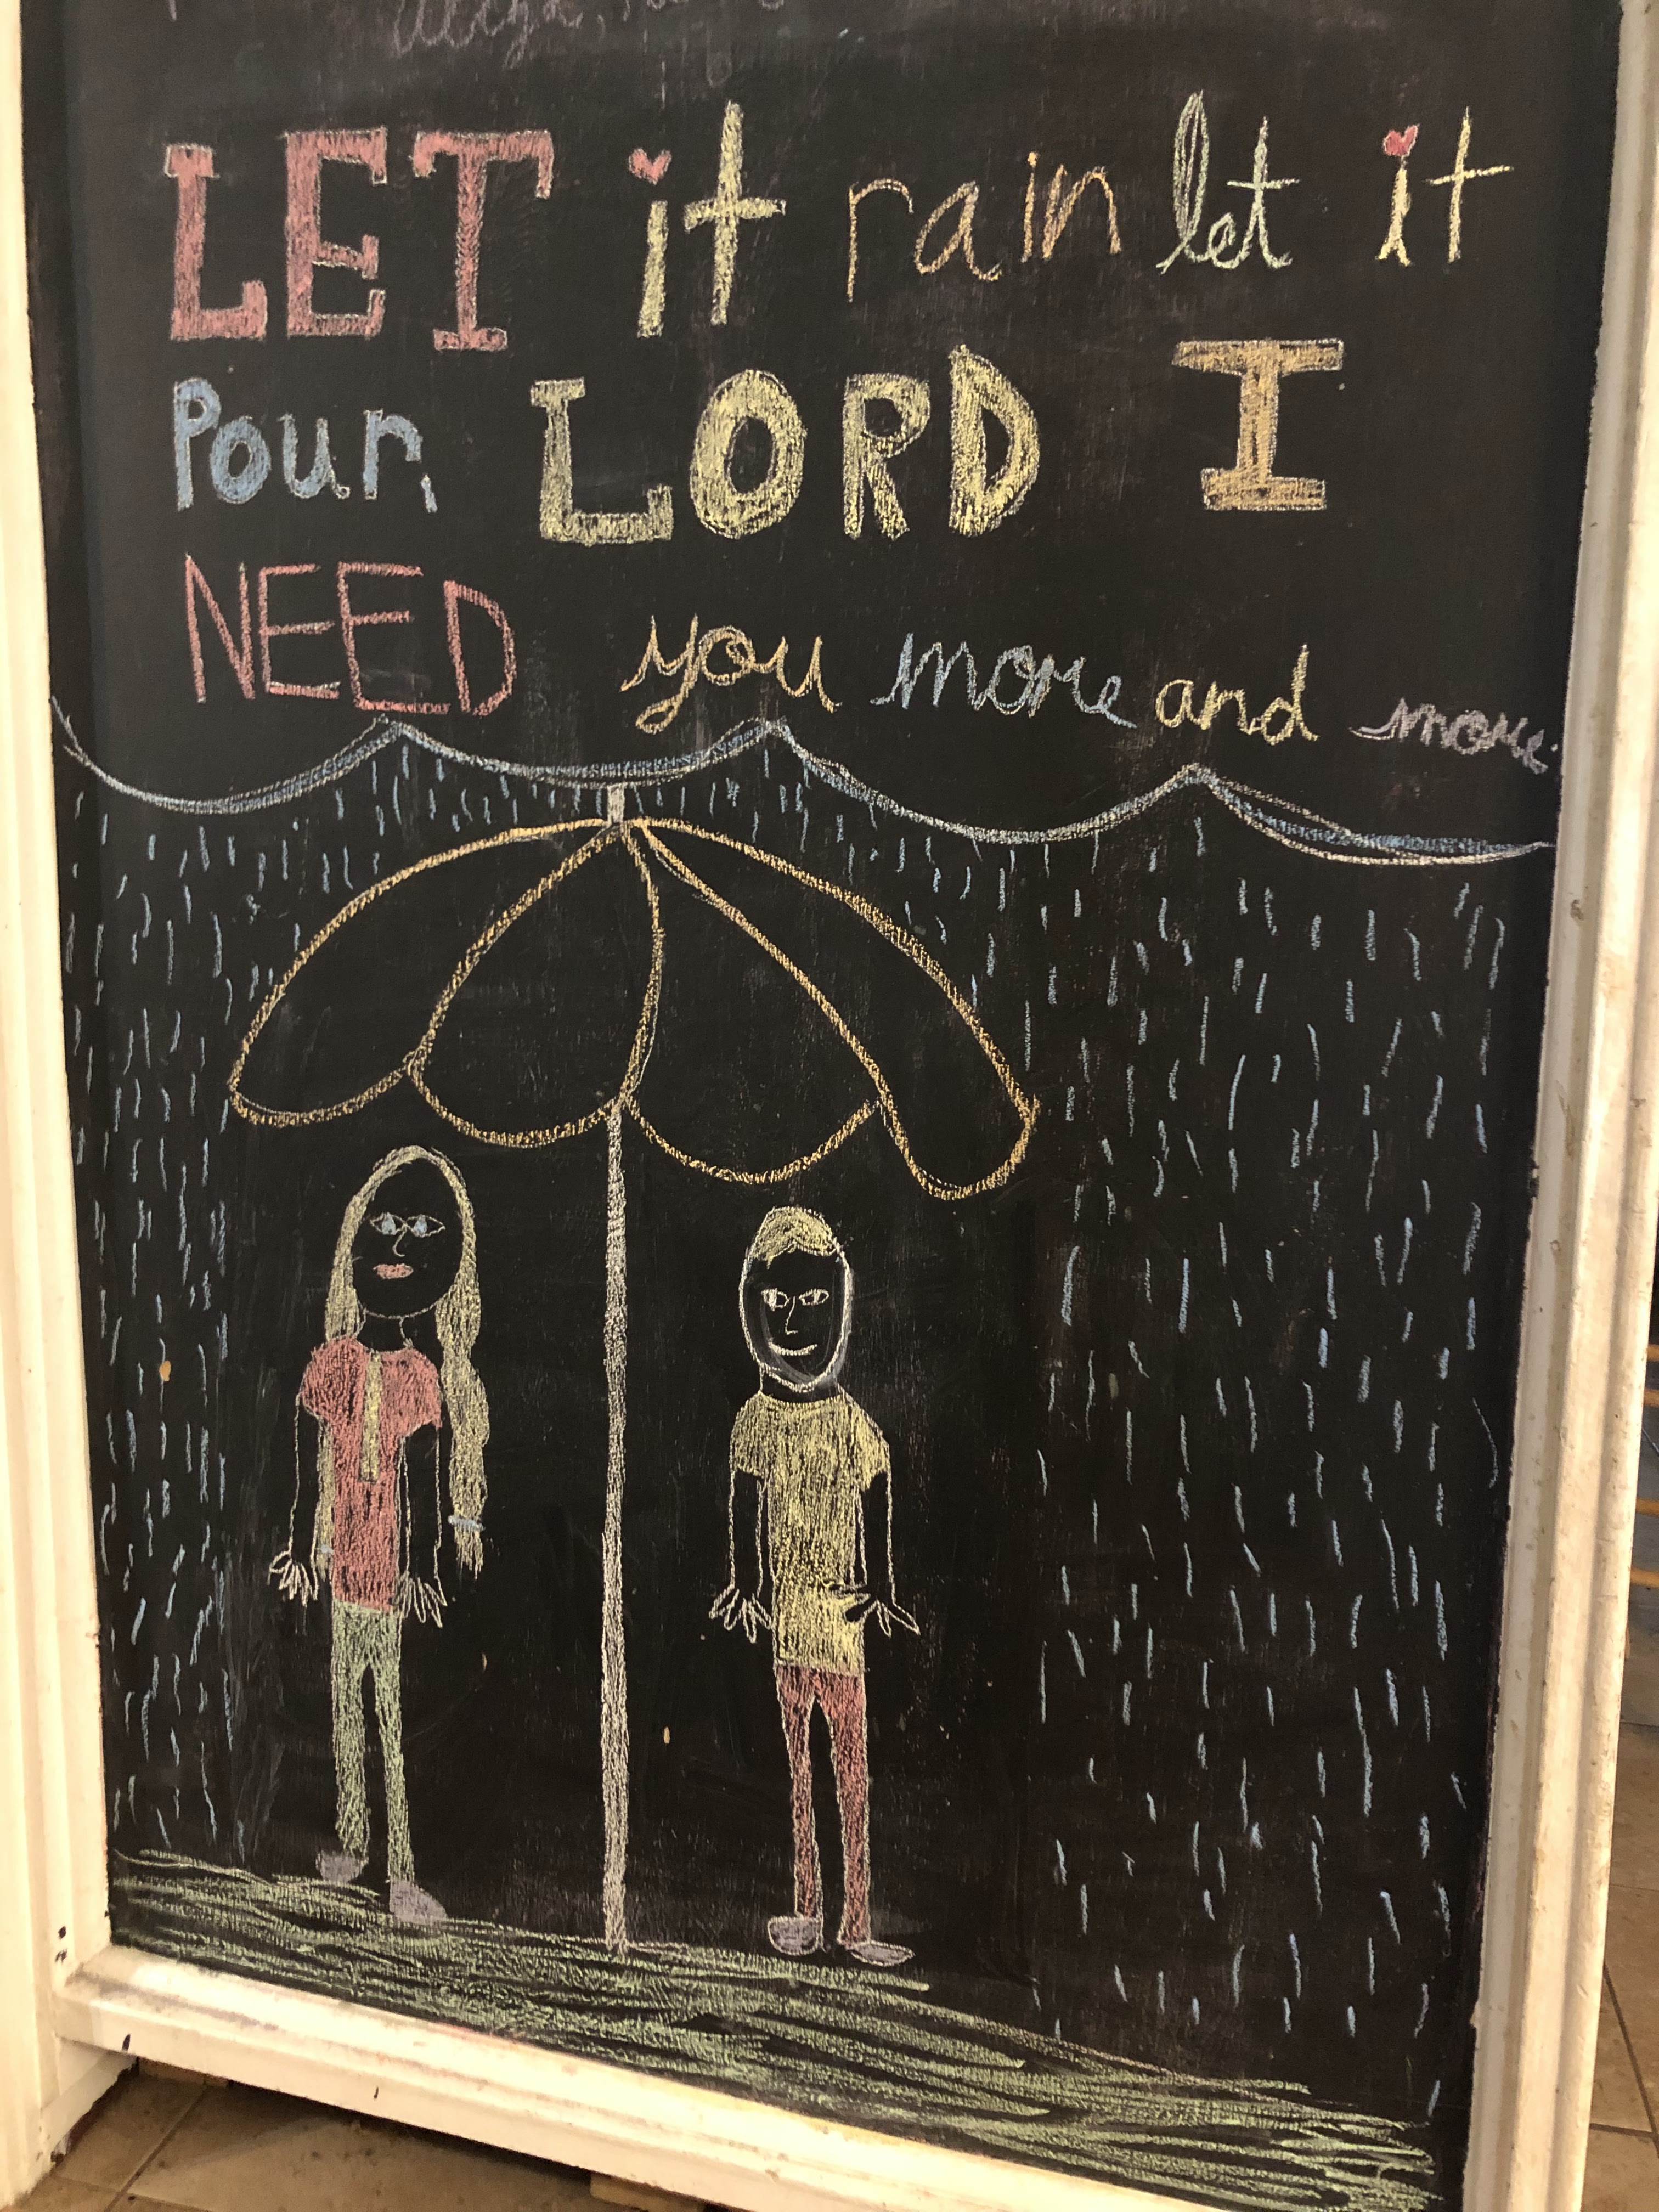 LET it rain let it
Pour LORD I
NEED you more and more.